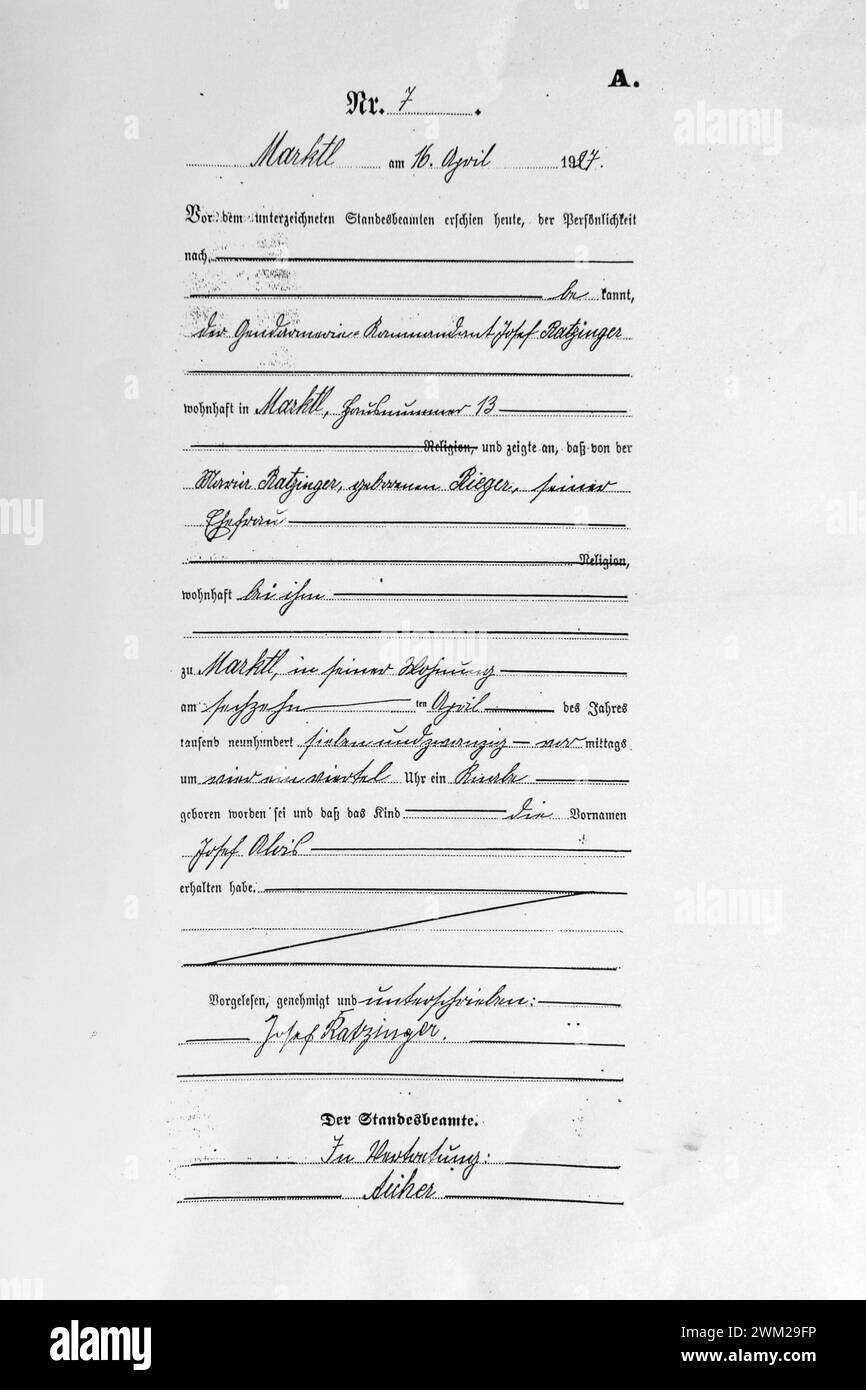 A.
Nr. 7.
Marktl am 16. April 1927.
Vor dem unterzeichneten Standesbeamten erschien heute, der Persönlichkeit
nach,
be kannt,
der Gendarmerie-Kommandant Josef Ratzinger
wohnhaft in Marktl, Hausnummer 13
Religion, und zeigte an, daß von der
Maria Ratzinger, geborenen Rieger, seiner
Ehefrau
Religion,
wohnhaft bei ihm
zu Marktl, in seiner Wohnung
am sechzehn ten April des Jahres
tausend neunhundert sieben und zwanzig vor mittags
um vier ein viertel Uhr ein Knabe
geboren worden sei und daß das Kind die Vornamen
Josef Alois
erhalten habe.
Vorgelesen, genehmigt und unterschrieben:
Josef Ratzinger.
Der Standesbeamte.
In Vertretung:
Aicher
alamy
Image ID: 2WM29FP
www.alamy.com